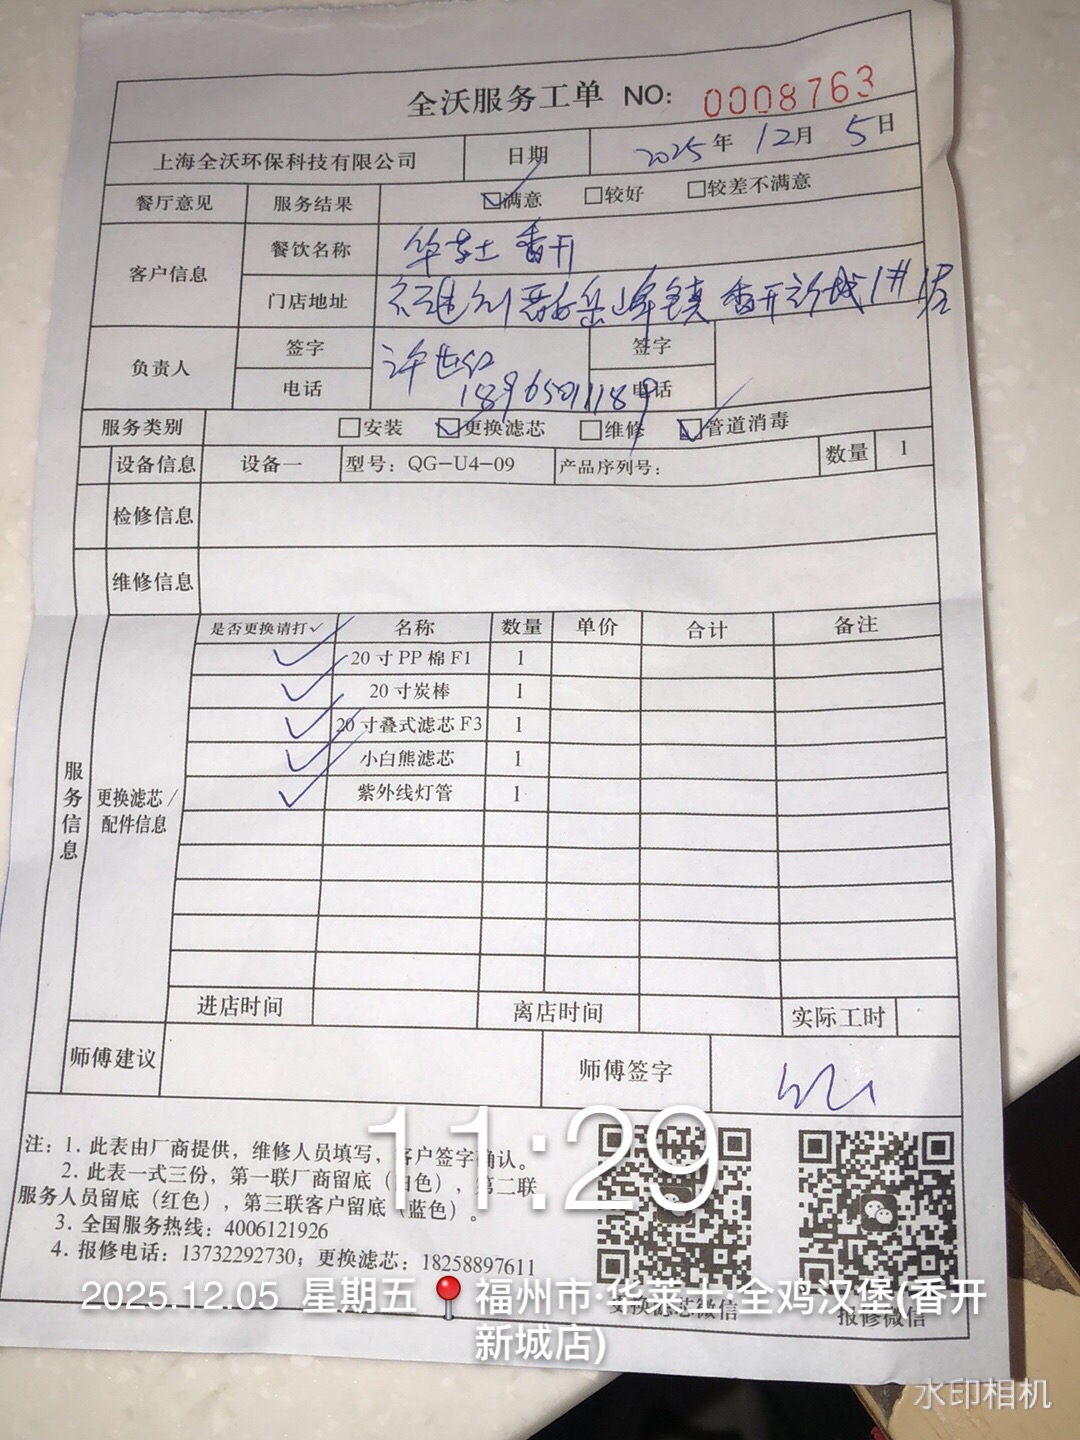 全沃服务工单 NO: 0008763
上海全沃环保科技有限公司 日期 2025年 12月 5日
餐厅意见 服务结果 ☑满意 □较好 □较差不满意
客户信息 餐饮名称 华莱士 香开
门店地址 福州 岳峰镇 香开新城1#
负责人 签字 签字
电话 18965011189 电话
服务类别 □安装 ☑更换滤芯 □维修 ☑管道消毒
设备信息 设备一 型号：QG-U4-09 产品序列号： 数量 1
检修信息
维修信息
服务信息
更换滤芯/
配件信息
是否更换请打✓ 名称 数量 单价 合计 备注
✓ 20寸PP棉F1 1
✓ 20寸炭棒 1
✓ 20寸叠式滤芯F3 1
✓ 小白熊滤芯 1
✓ 紫外线灯管 1
进店时间 离店时间 实际工时
师傅建议 师傅签字
注：1. 此表由厂商提供，维修人员填写，客户签字确认。
2. 此表一式三份，第一联厂商留底（白色），第二联
服务人员留底（红色），第三联客户留底（蓝色）。
3. 全国服务热线：4006121926
4. 报修电话：13732292730；更换滤芯：18258897611
更换滤芯微信 报修微信
11:29
2025.12.05 星期五 福州市·华莱士·全鸡汉堡(香开
新城店)
水印相机